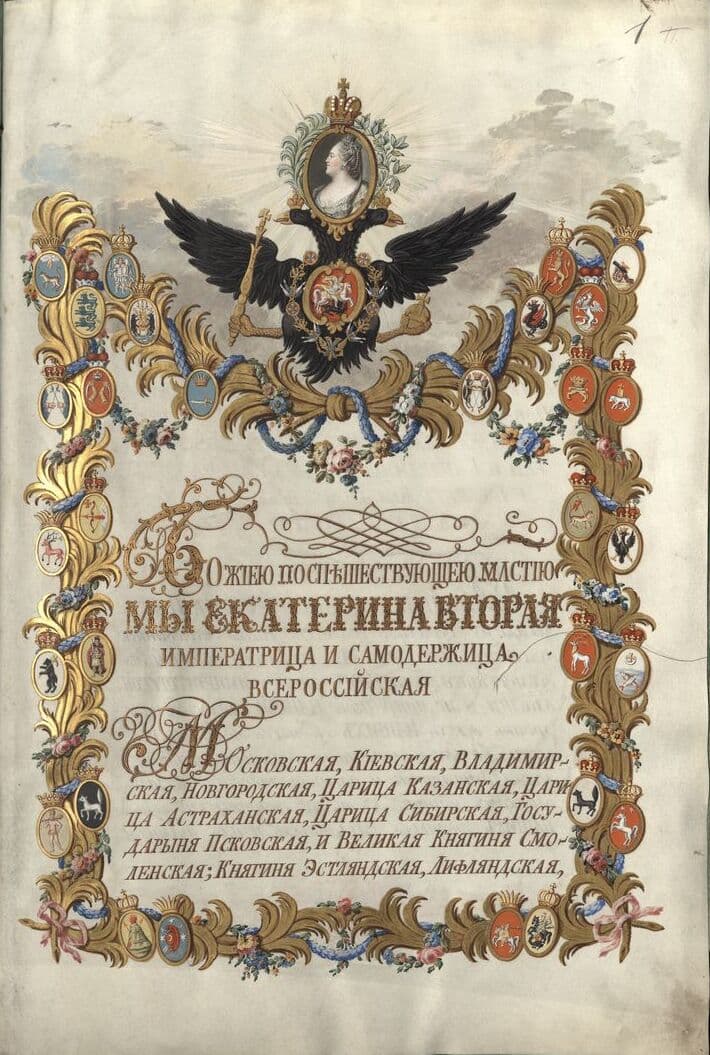 1
БОЖІЕЮ ПОСПѢШЕСТВУЮЩЕЮ МЛСТІЮ
МЫ ЕКАТЕРИНА ВТОРАЯ
ИМПЕРАТРИЦА И САМОДЕРЖИЦА
ВСЕРОССІЙСКАЯ
МОСКОВСКАЯ, КІЕВСКАЯ, ВЛАДИМИР-
СКАЯ, НОВГОРОДСКАЯ, ЦАРИЦА КАЗАНСКАЯ, ЦАРИ
ЦА АСТРАХАНСКАЯ, ЦАРИЦА СИБИРСКАЯ, ГОСУ-
ДАРЫНЯ ПСКОВСКАЯ, И ВЕЛИКАЯ КНЯГИНЯ СМО-
ЛЕНСКАЯ; КНЯГИНЯ ЭСТЛЯНДСКАЯ, ЛИФЛЯНДСКАЯ,